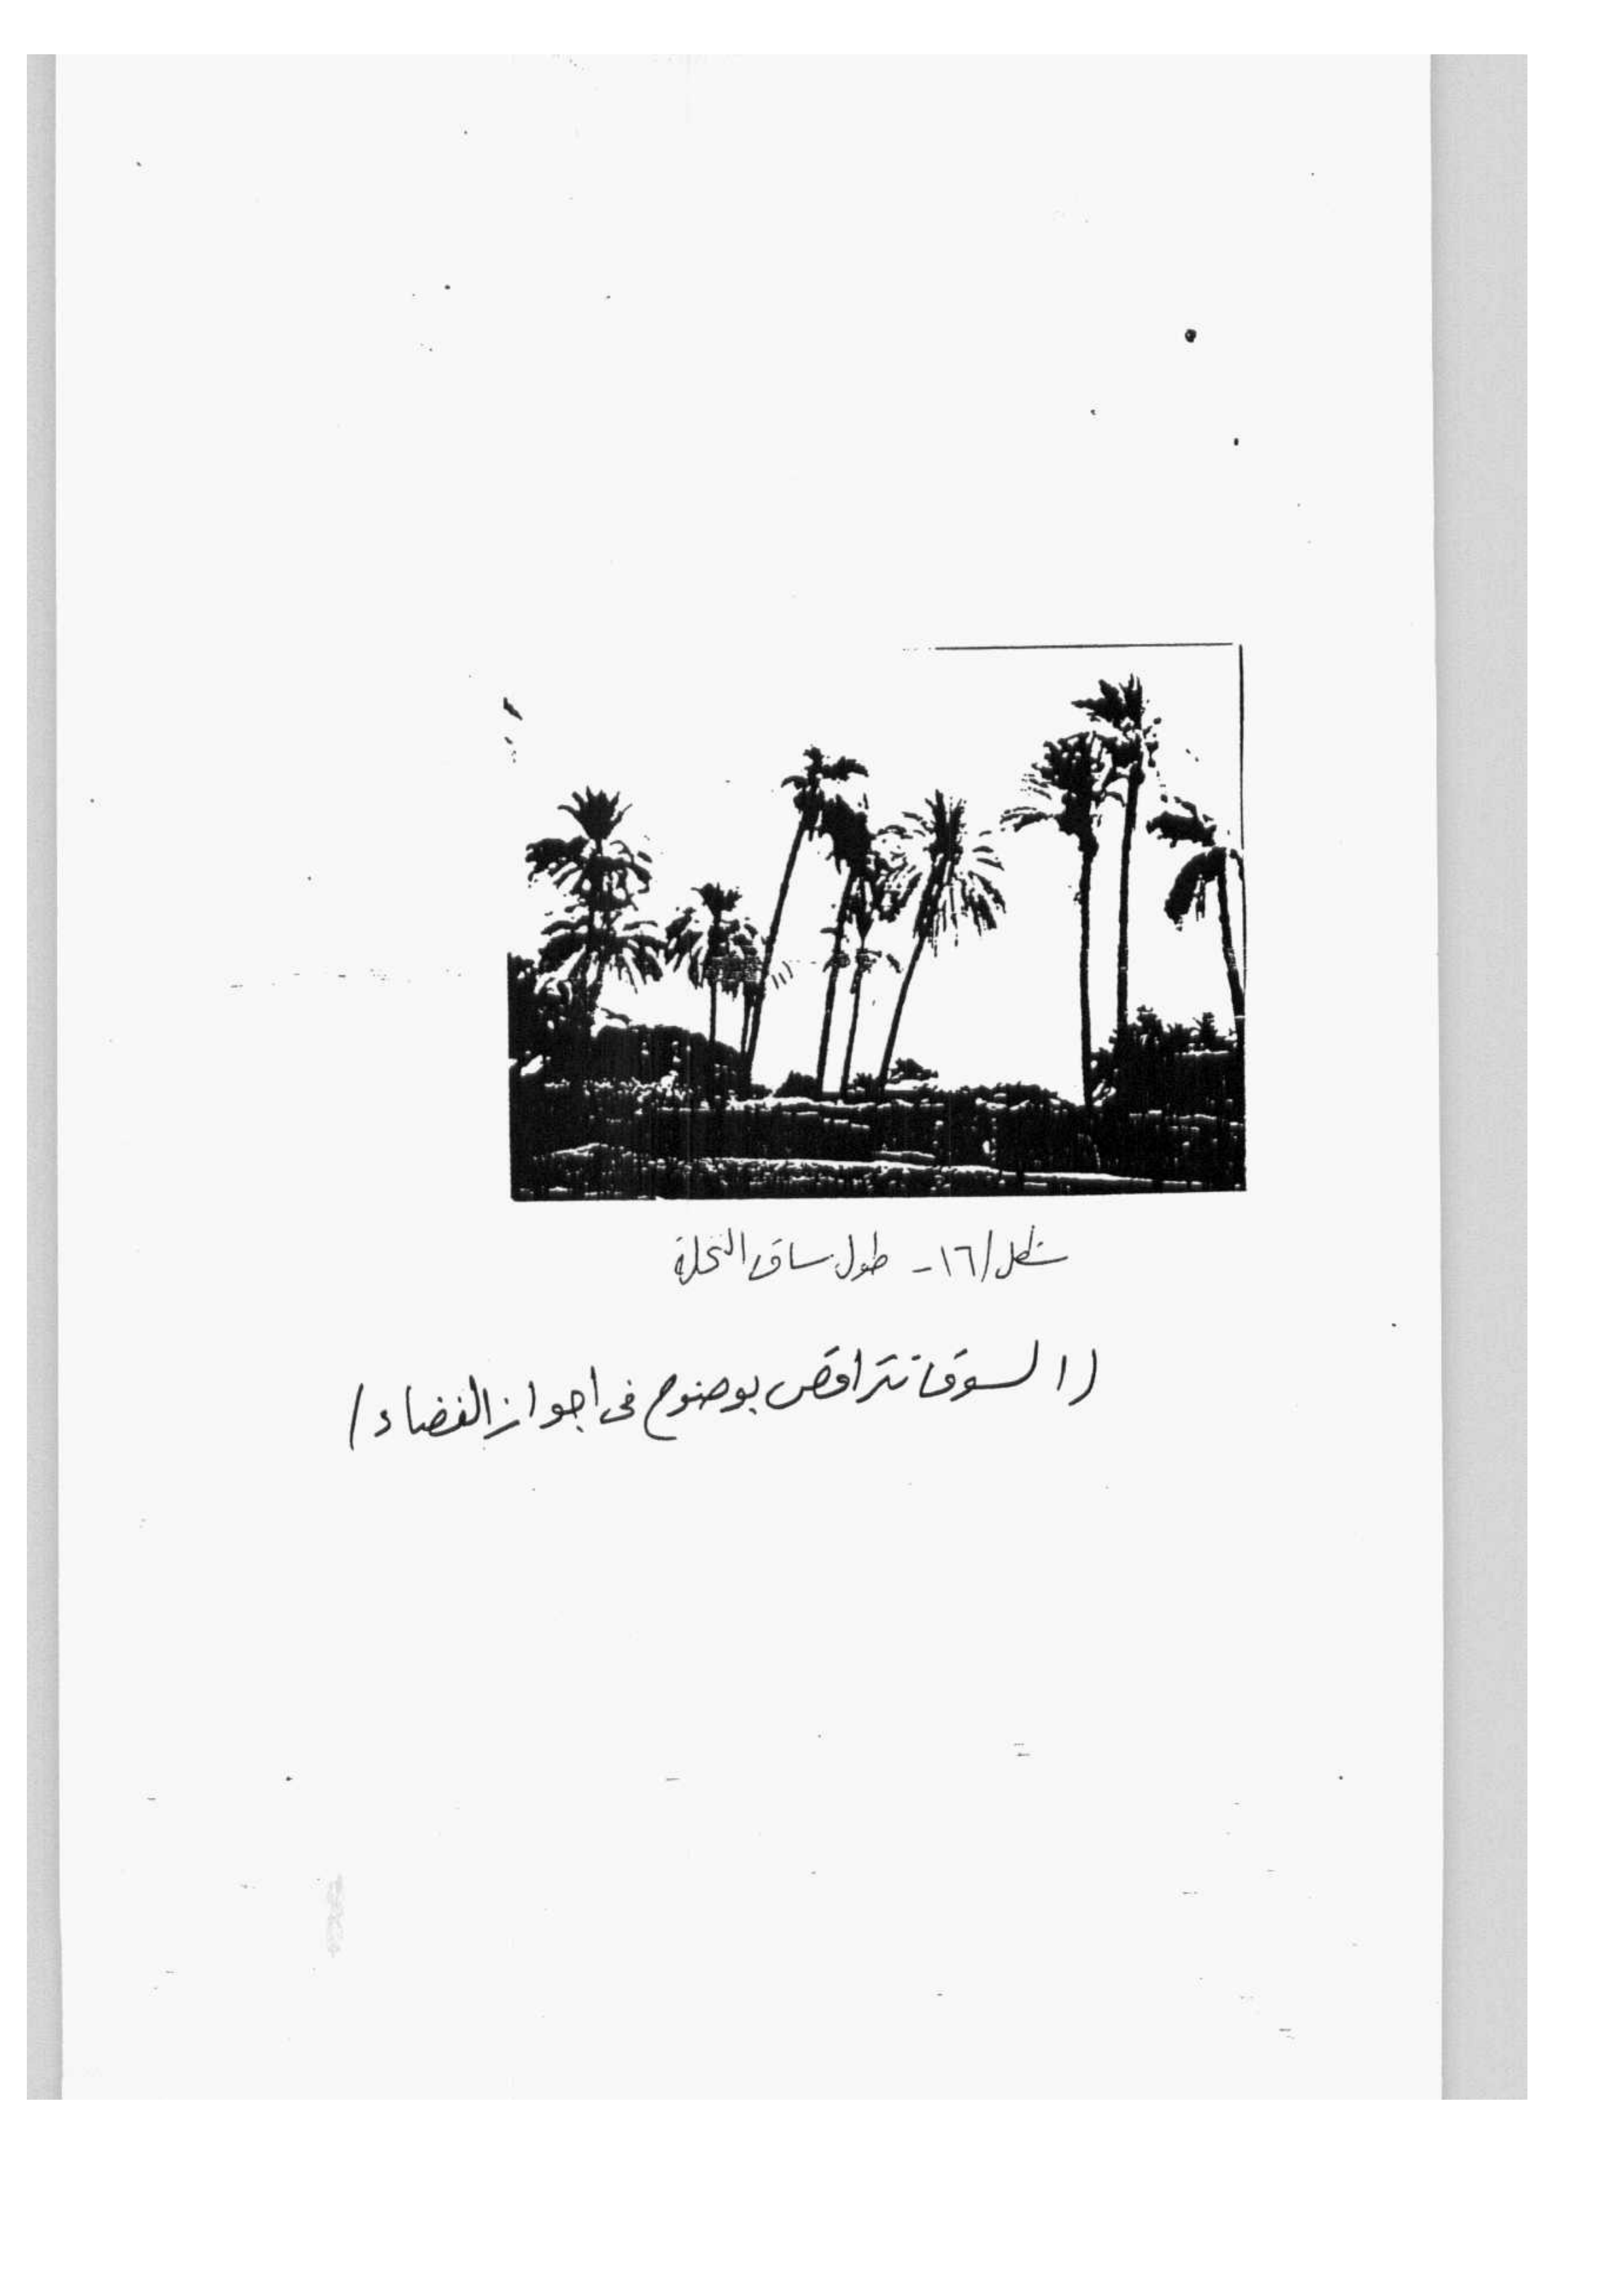 شكل/١٦- طول ساق النخلة
(السوق تتراقص بوضوح في اجواز الفضاء)